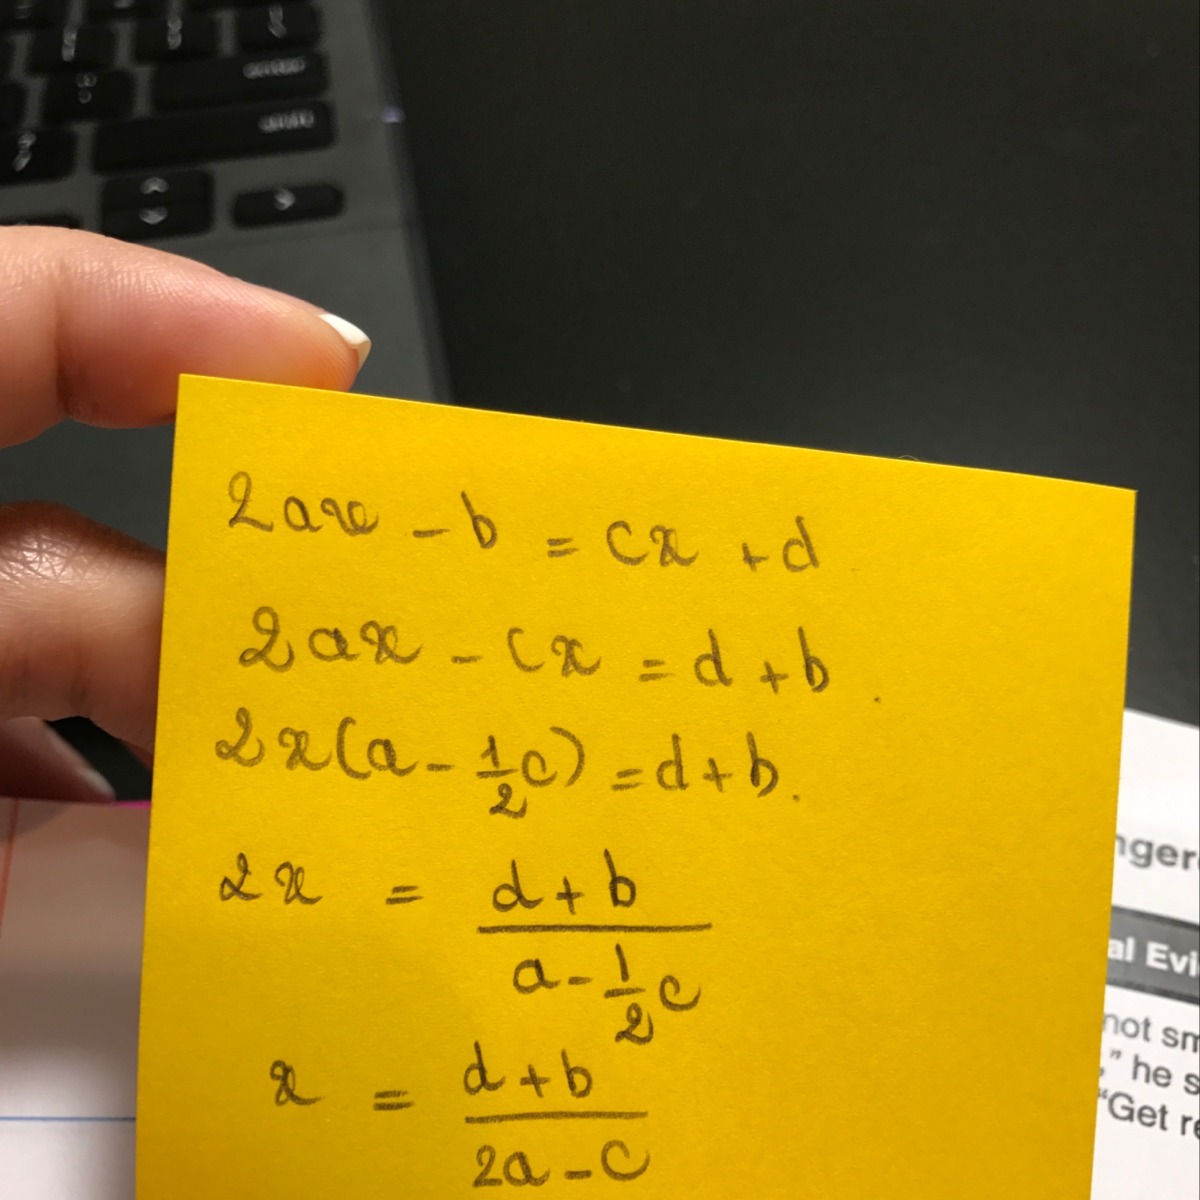 enter
shift
2ax - b = cx + d
2ax - cx = d + b.
2x(a - 1/2 c) = d + b.
2x = d + b / a - 1/2 c
x = d + b / 2a - c
nger
al Evi
not sm
," he s
"Get re